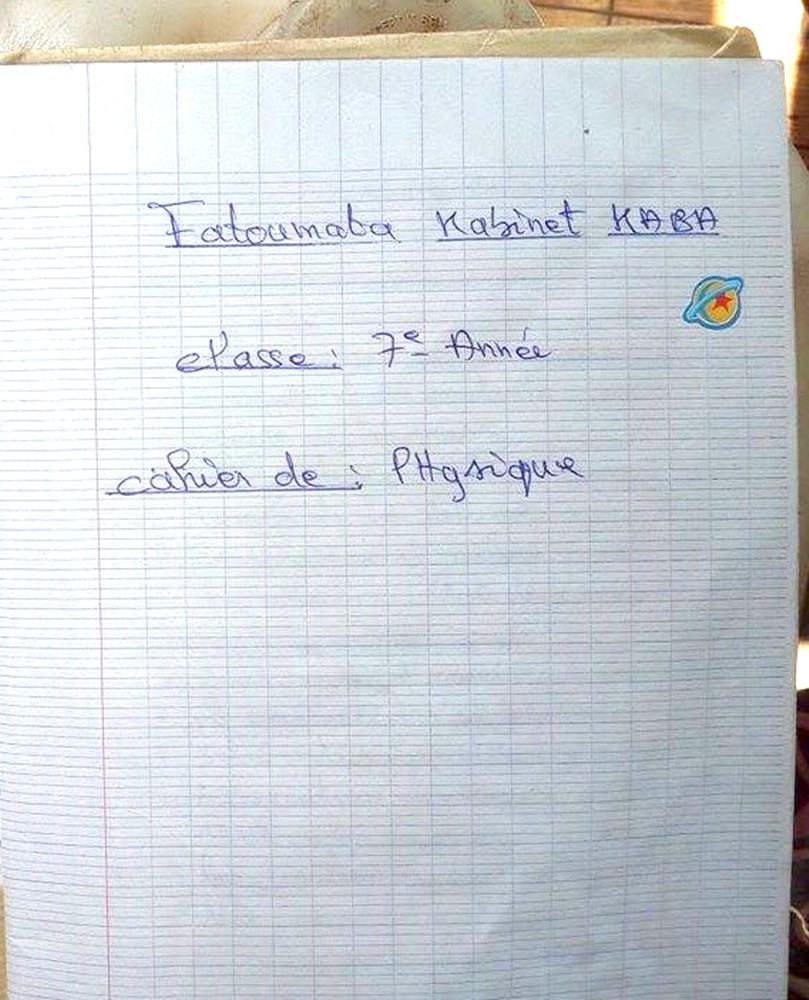 Fatoumata Kabinet KABA
classe : 7e Année
cahier de : PHysique